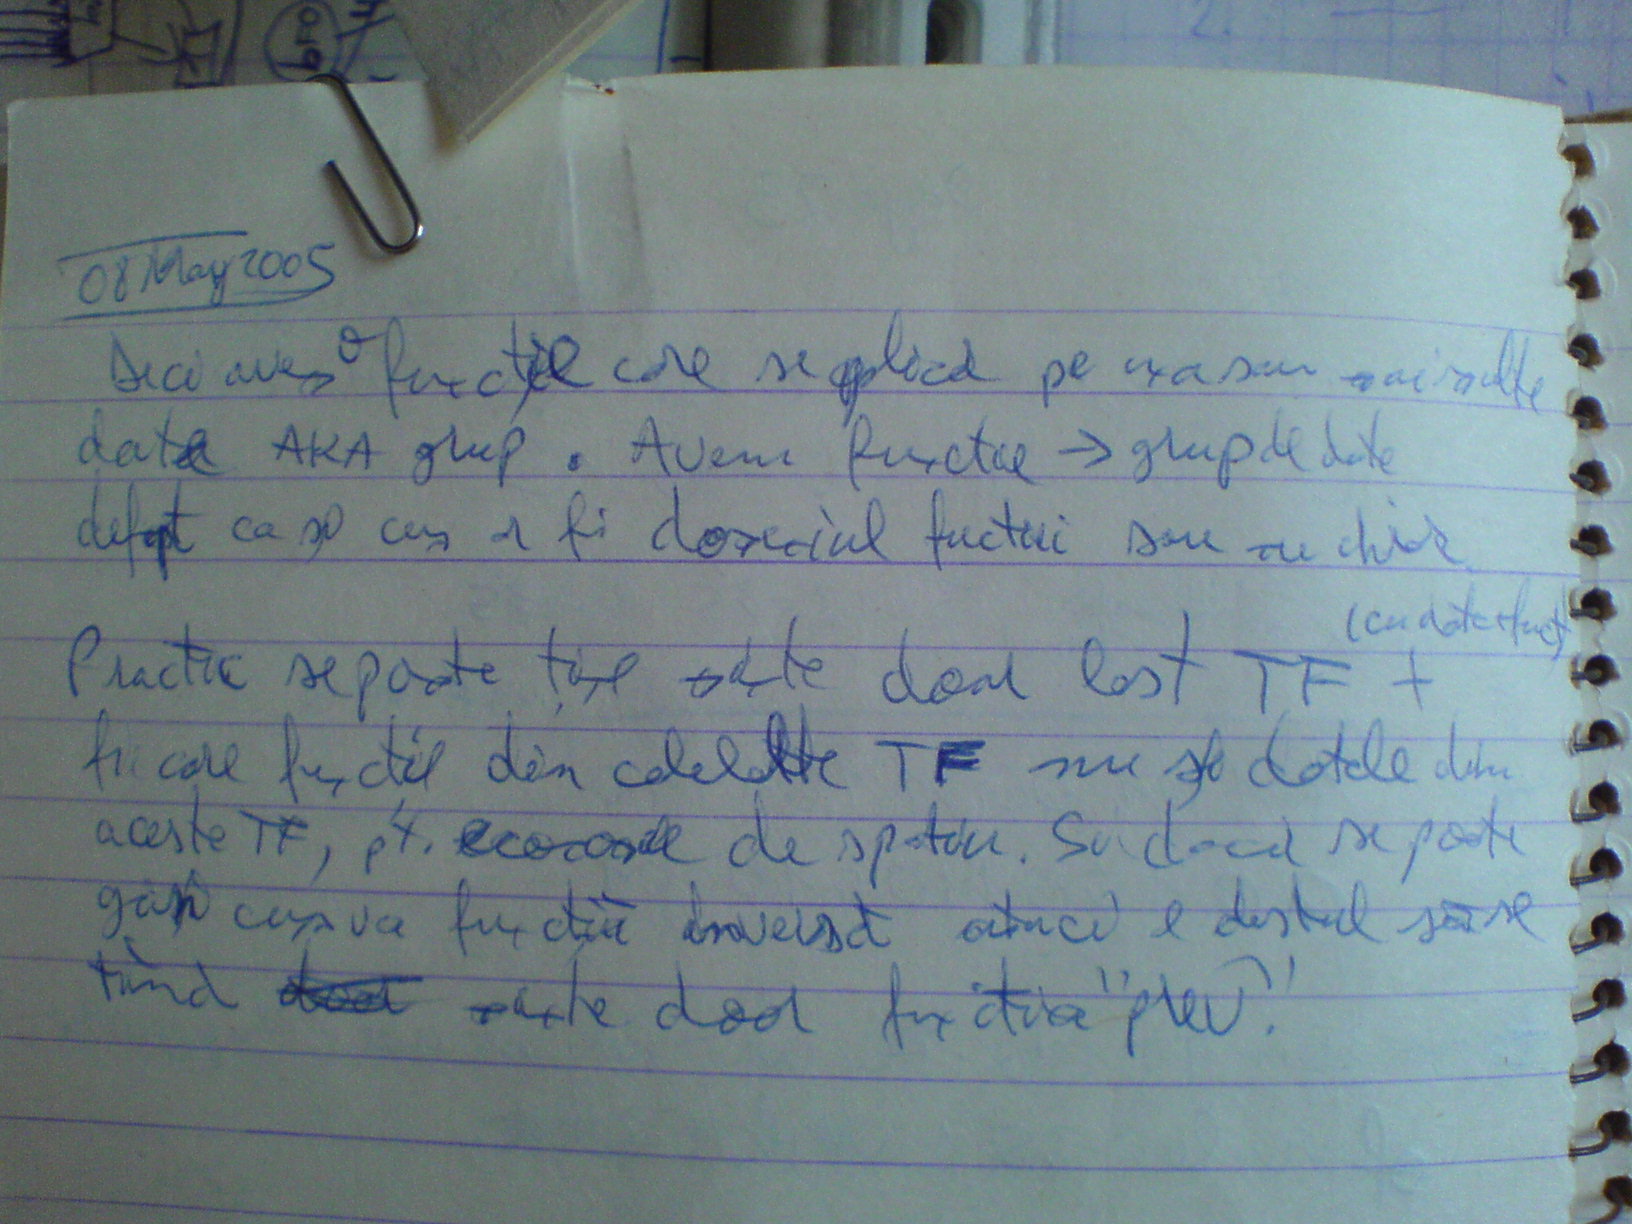 08 May 2005
Deci avem o funcție care se aplică pe una sau mai multe
date AKA grup. Avem funcție → grup de date
defapt ca și cum ar fi domeniul fucției sau nu chiar
(cu date+funcț)
Practic se poate ține minte doar last TF +
fiecare funcție din celelalte TF nu și datele din
aceste TF, pt. economie de spațiu. Sau dacă se poate
găsi cumva funcția inversă atunci e destul să se
țină minte doar funcția "prev".
2.